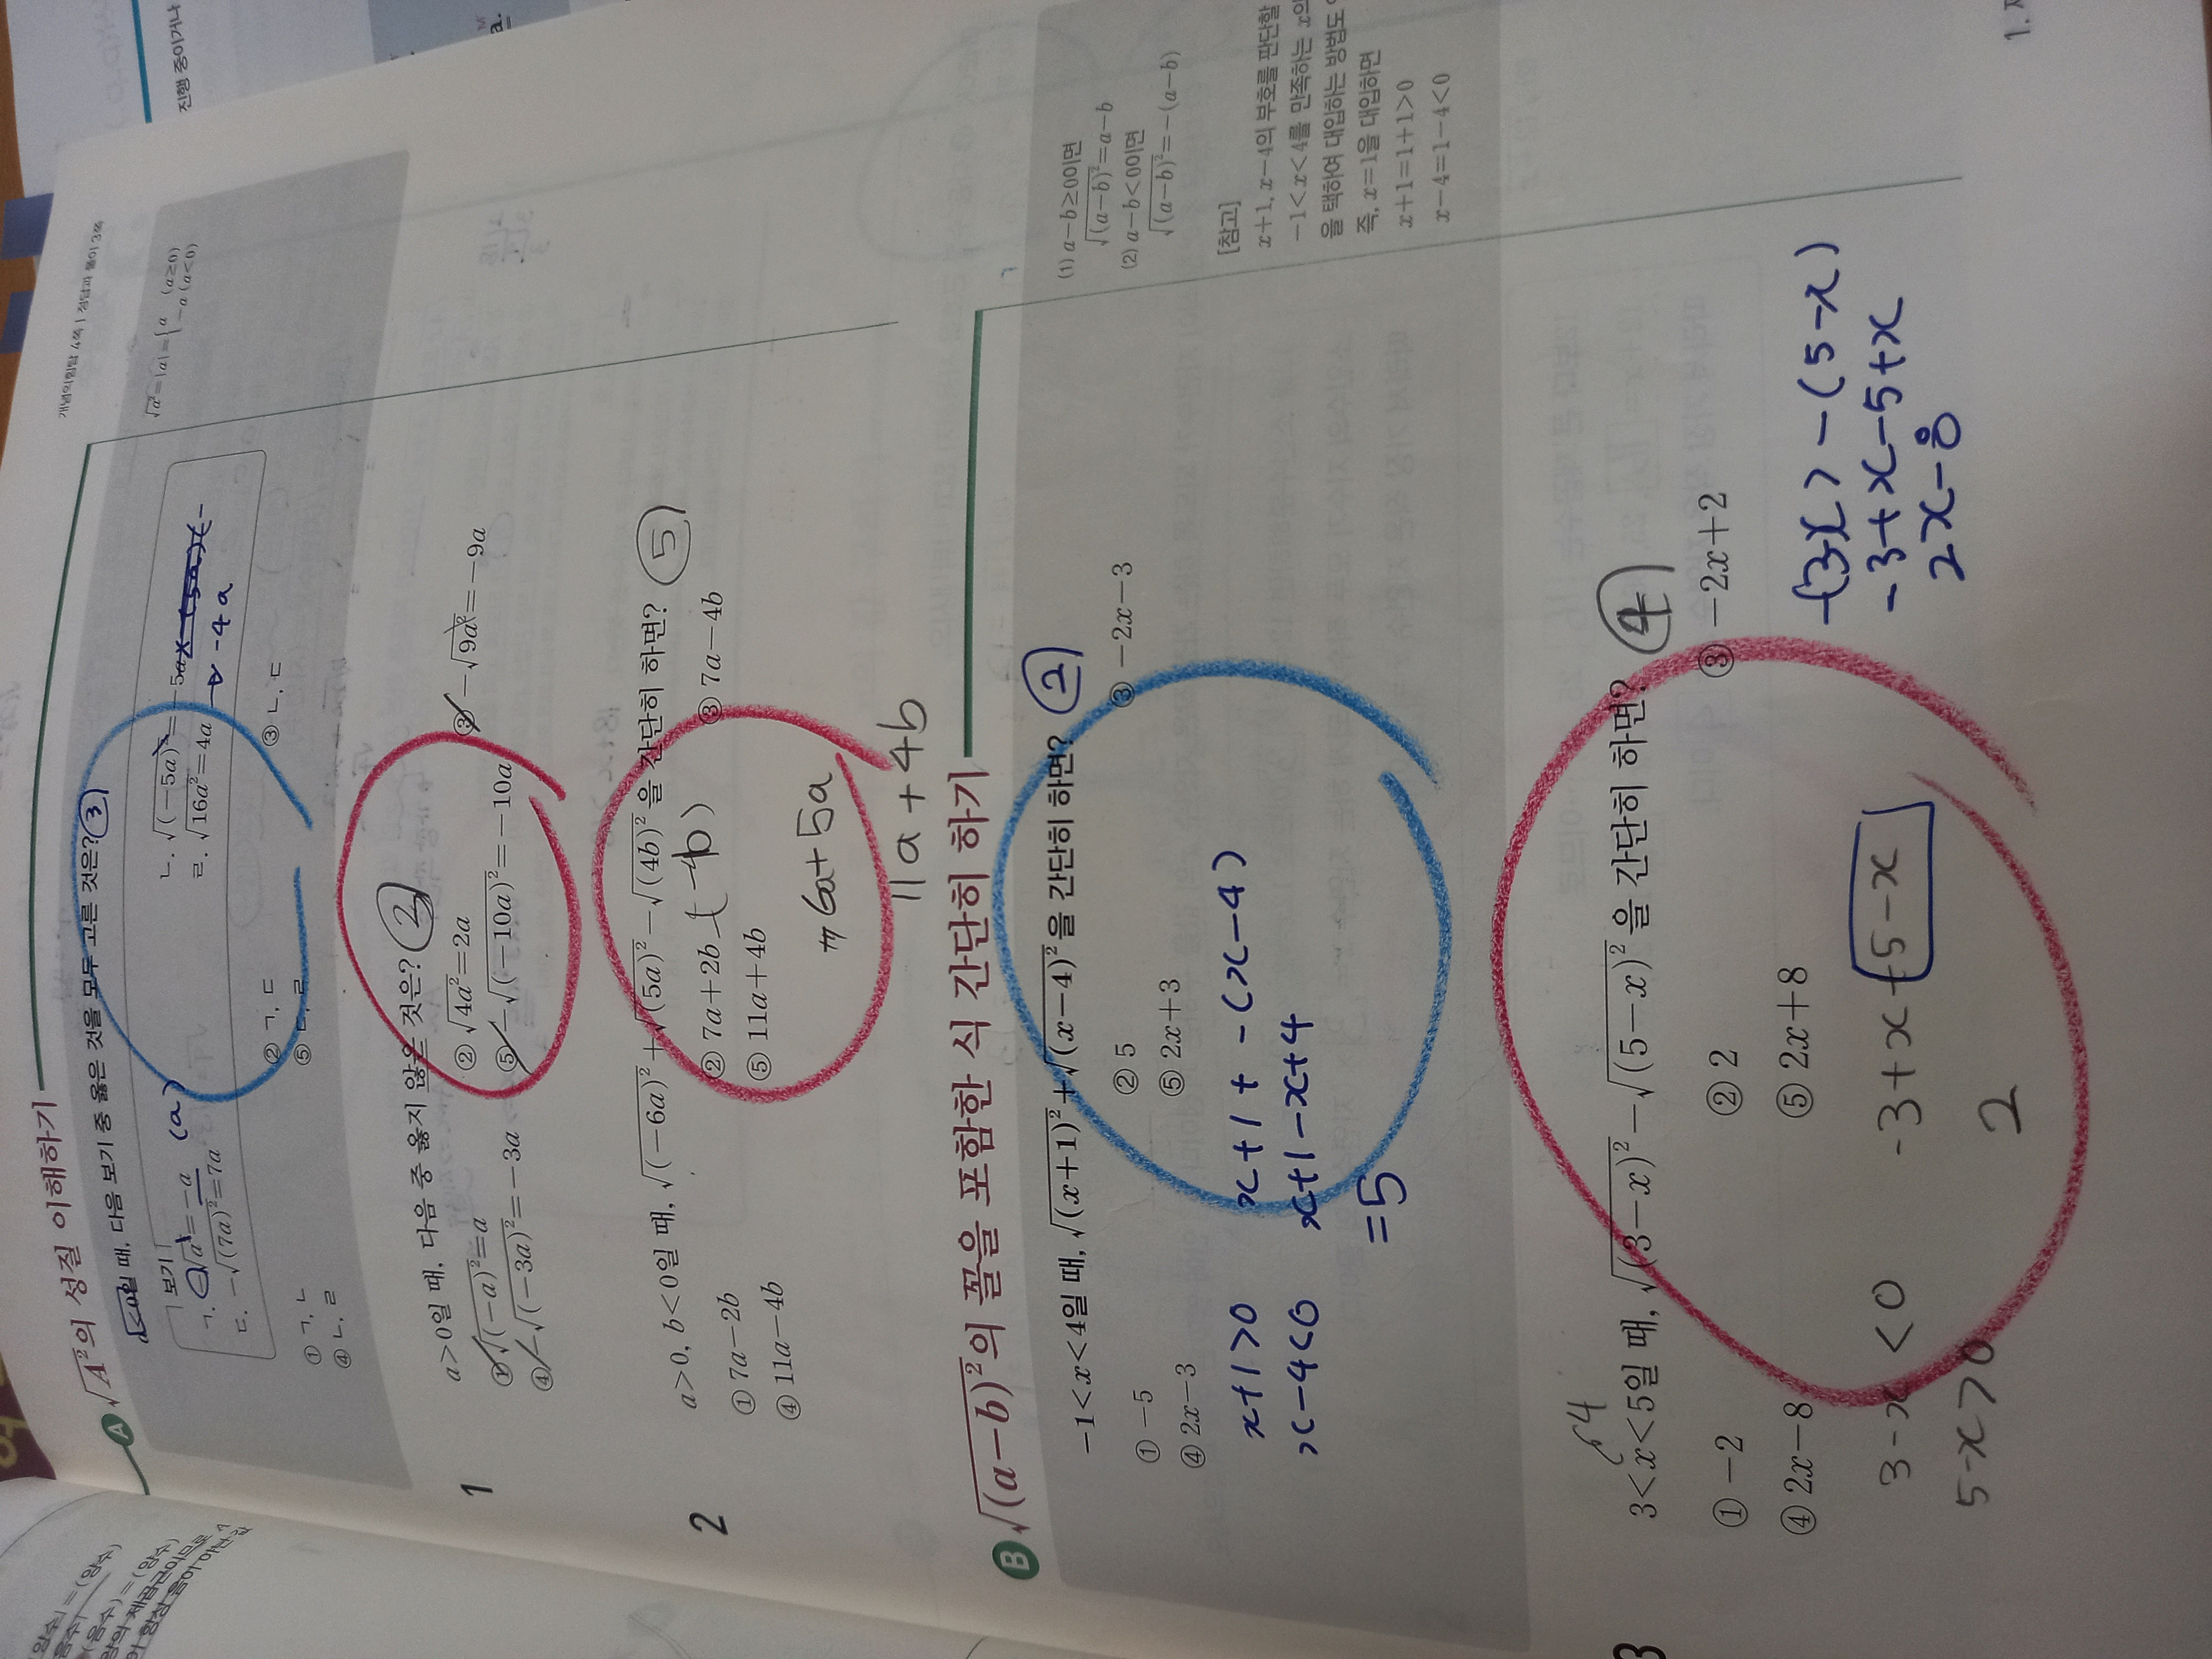 개념의힘탑 4쪽 | 정답과 풀이 3쪽
A √A²의 성질 이해하기
a<0일 때, 다음 보기 중 옳은 것을 모두 고른 것은? ③
보기
ㄱ. -√a²=-a (a)
ㄴ. √(-5a)²=-5a
ㄷ. -√(7a)²=7a
ㄹ. √16a²=4a → -4a
① ㄱ, ㄴ
② ㄱ, ㄷ
③ ㄴ, ㄷ
④ ㄴ, ㄹ
⑤ ㄷ, ㄹ
√a²=|a|={a (a≥0)
-a (a<0)
1
a>0일 때, 다음 중 옳지 않은 것은? ②
① √(-a)²=a
② √4a²=2a
③ -√9a²=-9a
④ -√(-3a)²=-3a
⑤ -√(-10a)²=-10a
2
a>0, b<0일 때, √(-6a)²+√(5a)²-√(4b)²을 간단히 하면? ⑤
① 7a-2b
② 7a+2b
③ 7a-4b
④ 11a-4b
⑤ 11a+4b
6a+5a
11a+4b
B √(a-b)²의 꼴을 포함한 식 간단히 하기
-1<x<4일 때, √(x+1)²+√(x-4)²을 간단히 하면? ②
① -5
② 5
③ -2x-3
④ 2x-3
⑤ 2x+3
x+1>0
x-4<0
x+1+-(x-4)
x+1-x+4
=5
(1) a-b≥0이면
√(a-b)²=a-b
(2) a-b<0이면
√(a-b)²=-(a-b)
[참고]
x+1, x-4의 부호를 판단할
-1<x<4를 만족하는 x의
을 택하여 대입하는 방법도
즉, x=1을 대입하면
x+1=1+1>0
x-4=1-4<0
3
4
3<x<5일 때, √(3-x)²-√(5-x)²을 간단히 하면? ④
① -2
② 2
③ -2x+2
④ 2x-8
⑤ 2x+8
3-x<0
5-x>0
-3+x+5-x
2
-(3-x)-(5-x)
-3+x-5+x
2x-8
진행 중이거나